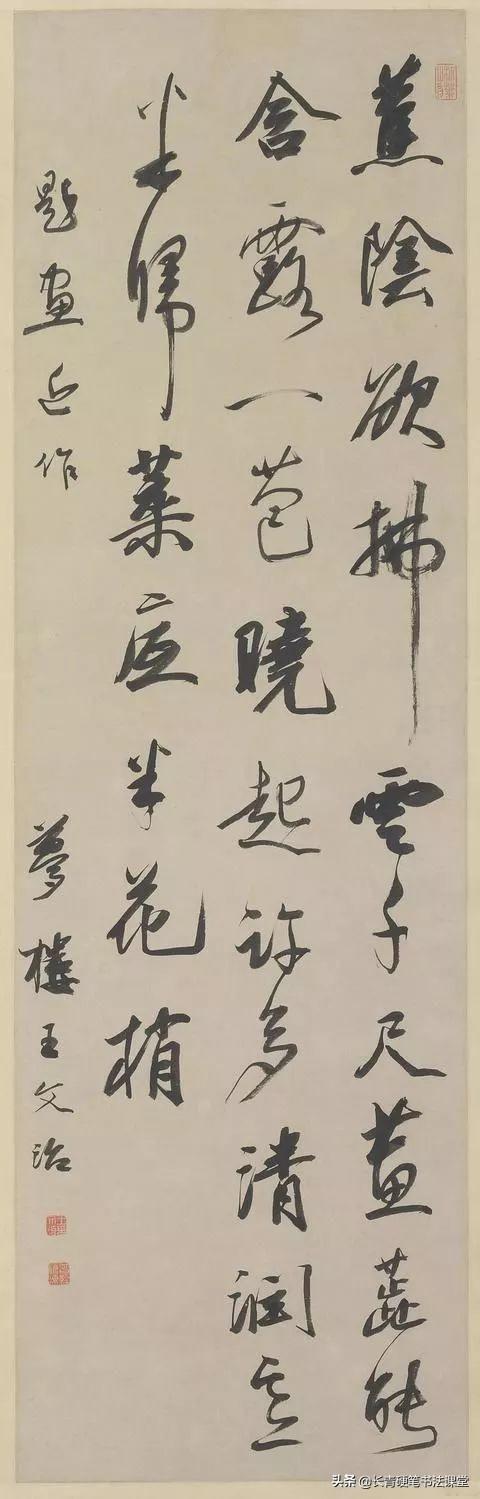 蕉陰欲拂雲千尺蕙蕊能
含露一苞曉起許多清潤意
半歸葉底半花梢
題畫近作
夢樓王文治
头条 @长青硬笔书法课堂